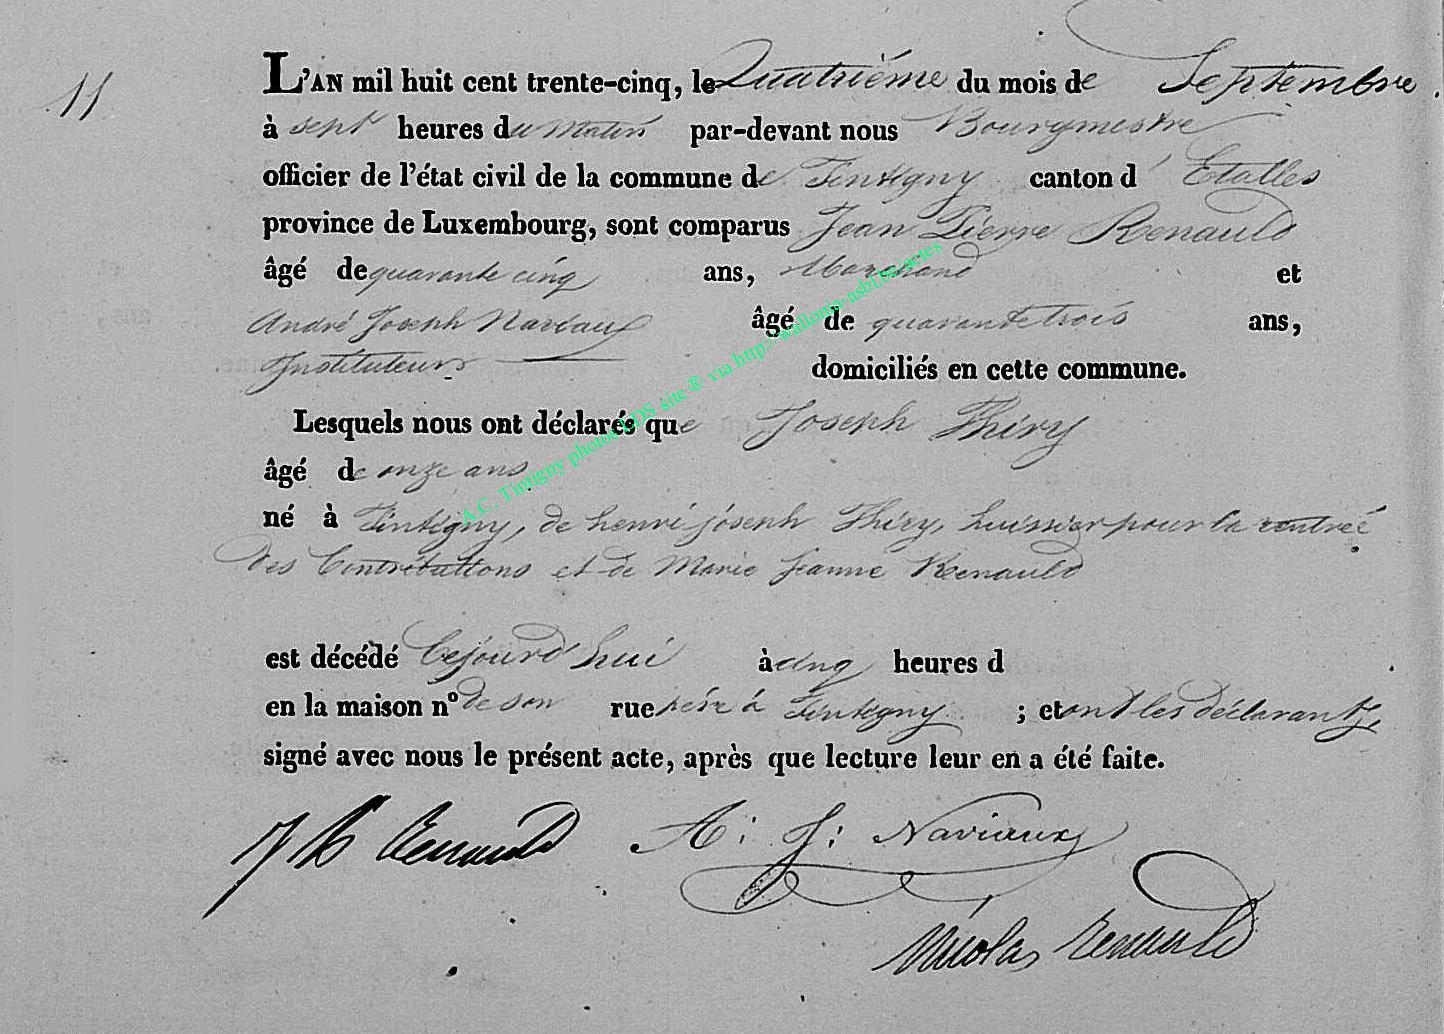 11
L'AN mil huit cent trente-cinq, le Quatriéme du mois de Septembre.
à sept heures du Matin par-devant nous Bourgmestre
officier de l'état civil de la commune de Tintigny canton d' Etalles
province de Luxembourg, sont comparus Jean Pierre Renauld
âgé de quarante cinq ans, Marchand et
André Joseph Naviaux âgé de quarante trois ans,
Instituteur domiciliés en cette commune.
Lesquels nous ont déclarés que Joseph Thiry
âgé de onze ans
né à Tintigny, de henri joseph Thiry, huissier pour la rentreé
des Contributions et de Marie Jeanne Renauld
est décédé Cejourd'hui à cinq heures d
en la maison nº de son rue pére à Tintigny ; et ont les déclarants,
signé avec nous le présent acte, après que lecture leur en a été faite.
J P Renauld A: J: Naviaux
Nicolas Renauld
A.C. Tintigny photos LDS site ® via http://wallonia-asbl.be/actes